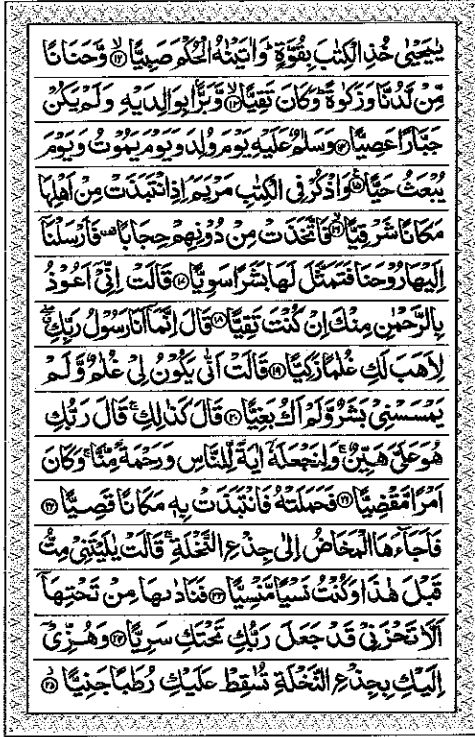 يٰيَحْيٰى خُذِ الْكِتٰبَ بِقُوَّةٍ ؕ وَاٰتَيْنٰهُ الْحُكْمَ صَبِيًّا ۙ‏﴿۱۲﴾ وَّحَنَانًا
مِّنْ لَّدُنَّا وَزَكٰوةً ؕ وَكَانَ تَقِيًّا ۙ‏﴿۱۳﴾ وَّبَرًّۢا بِوَالِدَيْهِ وَلَمْ يَكُنْ
جَبَّارًا عَصِيًّا ﴿۱۴﴾ وَسَلٰمٌ عَلَيْهِ يَوْمَ وُلِدَ وَيَوْمَ يَمُوْتُ وَيَوْمَ
يُبْعَثُ حَيًّا ﴿۱۵﴾ وَاذْكُرْ فِى الْكِتٰبِ مَرْيَمَ ۘ اِذِ انْتَبَذَتْ مِنْ اَهْلِهَا
مَكَانًا شَرْقِيًّا ۙ‏﴿۱۶﴾ فَاتَّخَذَتْ مِنْ دُوْنِهِمْ حِجَابًا ۪ فَاَرْسَلْنَاۤ
اِلَيْهَا رُوْحَنَا فَتَمَثَّلَ لَهَا بَشَرًا سَوِيًّا ﴿۱۷﴾ قَالَتْ اِنِّىْۤ اَعُوْذُ
بِالرَّحْمٰنِ مِنْكَ اِنْ كُنْتَ تَقِيًّا ﴿۱۸﴾ قَالَ اِنَّمَاۤ اَنَا رَسُوْلُ رَبِّكِ ۖ
لِاَهَبَ لَكِ غُلٰمًا زَكِيًّا ﴿۱۹﴾ قَالَتْ اَنّٰى يَكُوْنُ لِىْ غُلٰمٌ وَّلَمْ
يَمْسَسْنِىْ بَشَرٌ وَّلَمْ اَكُ بَغِيًّا ﴿۲۰﴾ قَالَ كَذٰلِكِ ۚ قَالَ رَبُّكِ
هُوَ عَلَىَّ هَيِّنٌ ۚ وَلِنَجْعَلَهٗۤ اٰيَةً لِّلنَّاسِ وَرَحْمَةً مِّنَّا ۚ وَكَانَ
اَمْرًا مَّقْضِيًّا ﴿۲۱﴾ فَحَمَلَتْهُ فَانْتَبَذَتْ بِهٖ مَكَانًا قَصِيًّا ﴿۲۲﴾
فَاَجَآءَهَا الْمَخَاضُ اِلٰى جِذْعِ النَّخْلَةِ ۚ قَالَتْ يٰلَيْتَنِىْ مِتُّ
قَبْلَ هٰذَا وَكُنْتُ نَسْيًا مَّنْسِيًّا ﴿۲۳﴾ فَنَادٰٮهَا مِنْ تَحْتِهَاۤ
اَلَّا تَحْزَنِىْ قَدْ جَعَلَ رَبُّكِ تَحْتَكِ سَرِيًّا ﴿۲۴﴾ وَهُزِّىْۤ
اِلَيْكِ بِجِذْعِ النَّخْلَةِ تُسٰقِطْ عَلَيْكِ رُطَبًا جَنِيًّا ۙ‏﴿۲۵﴾